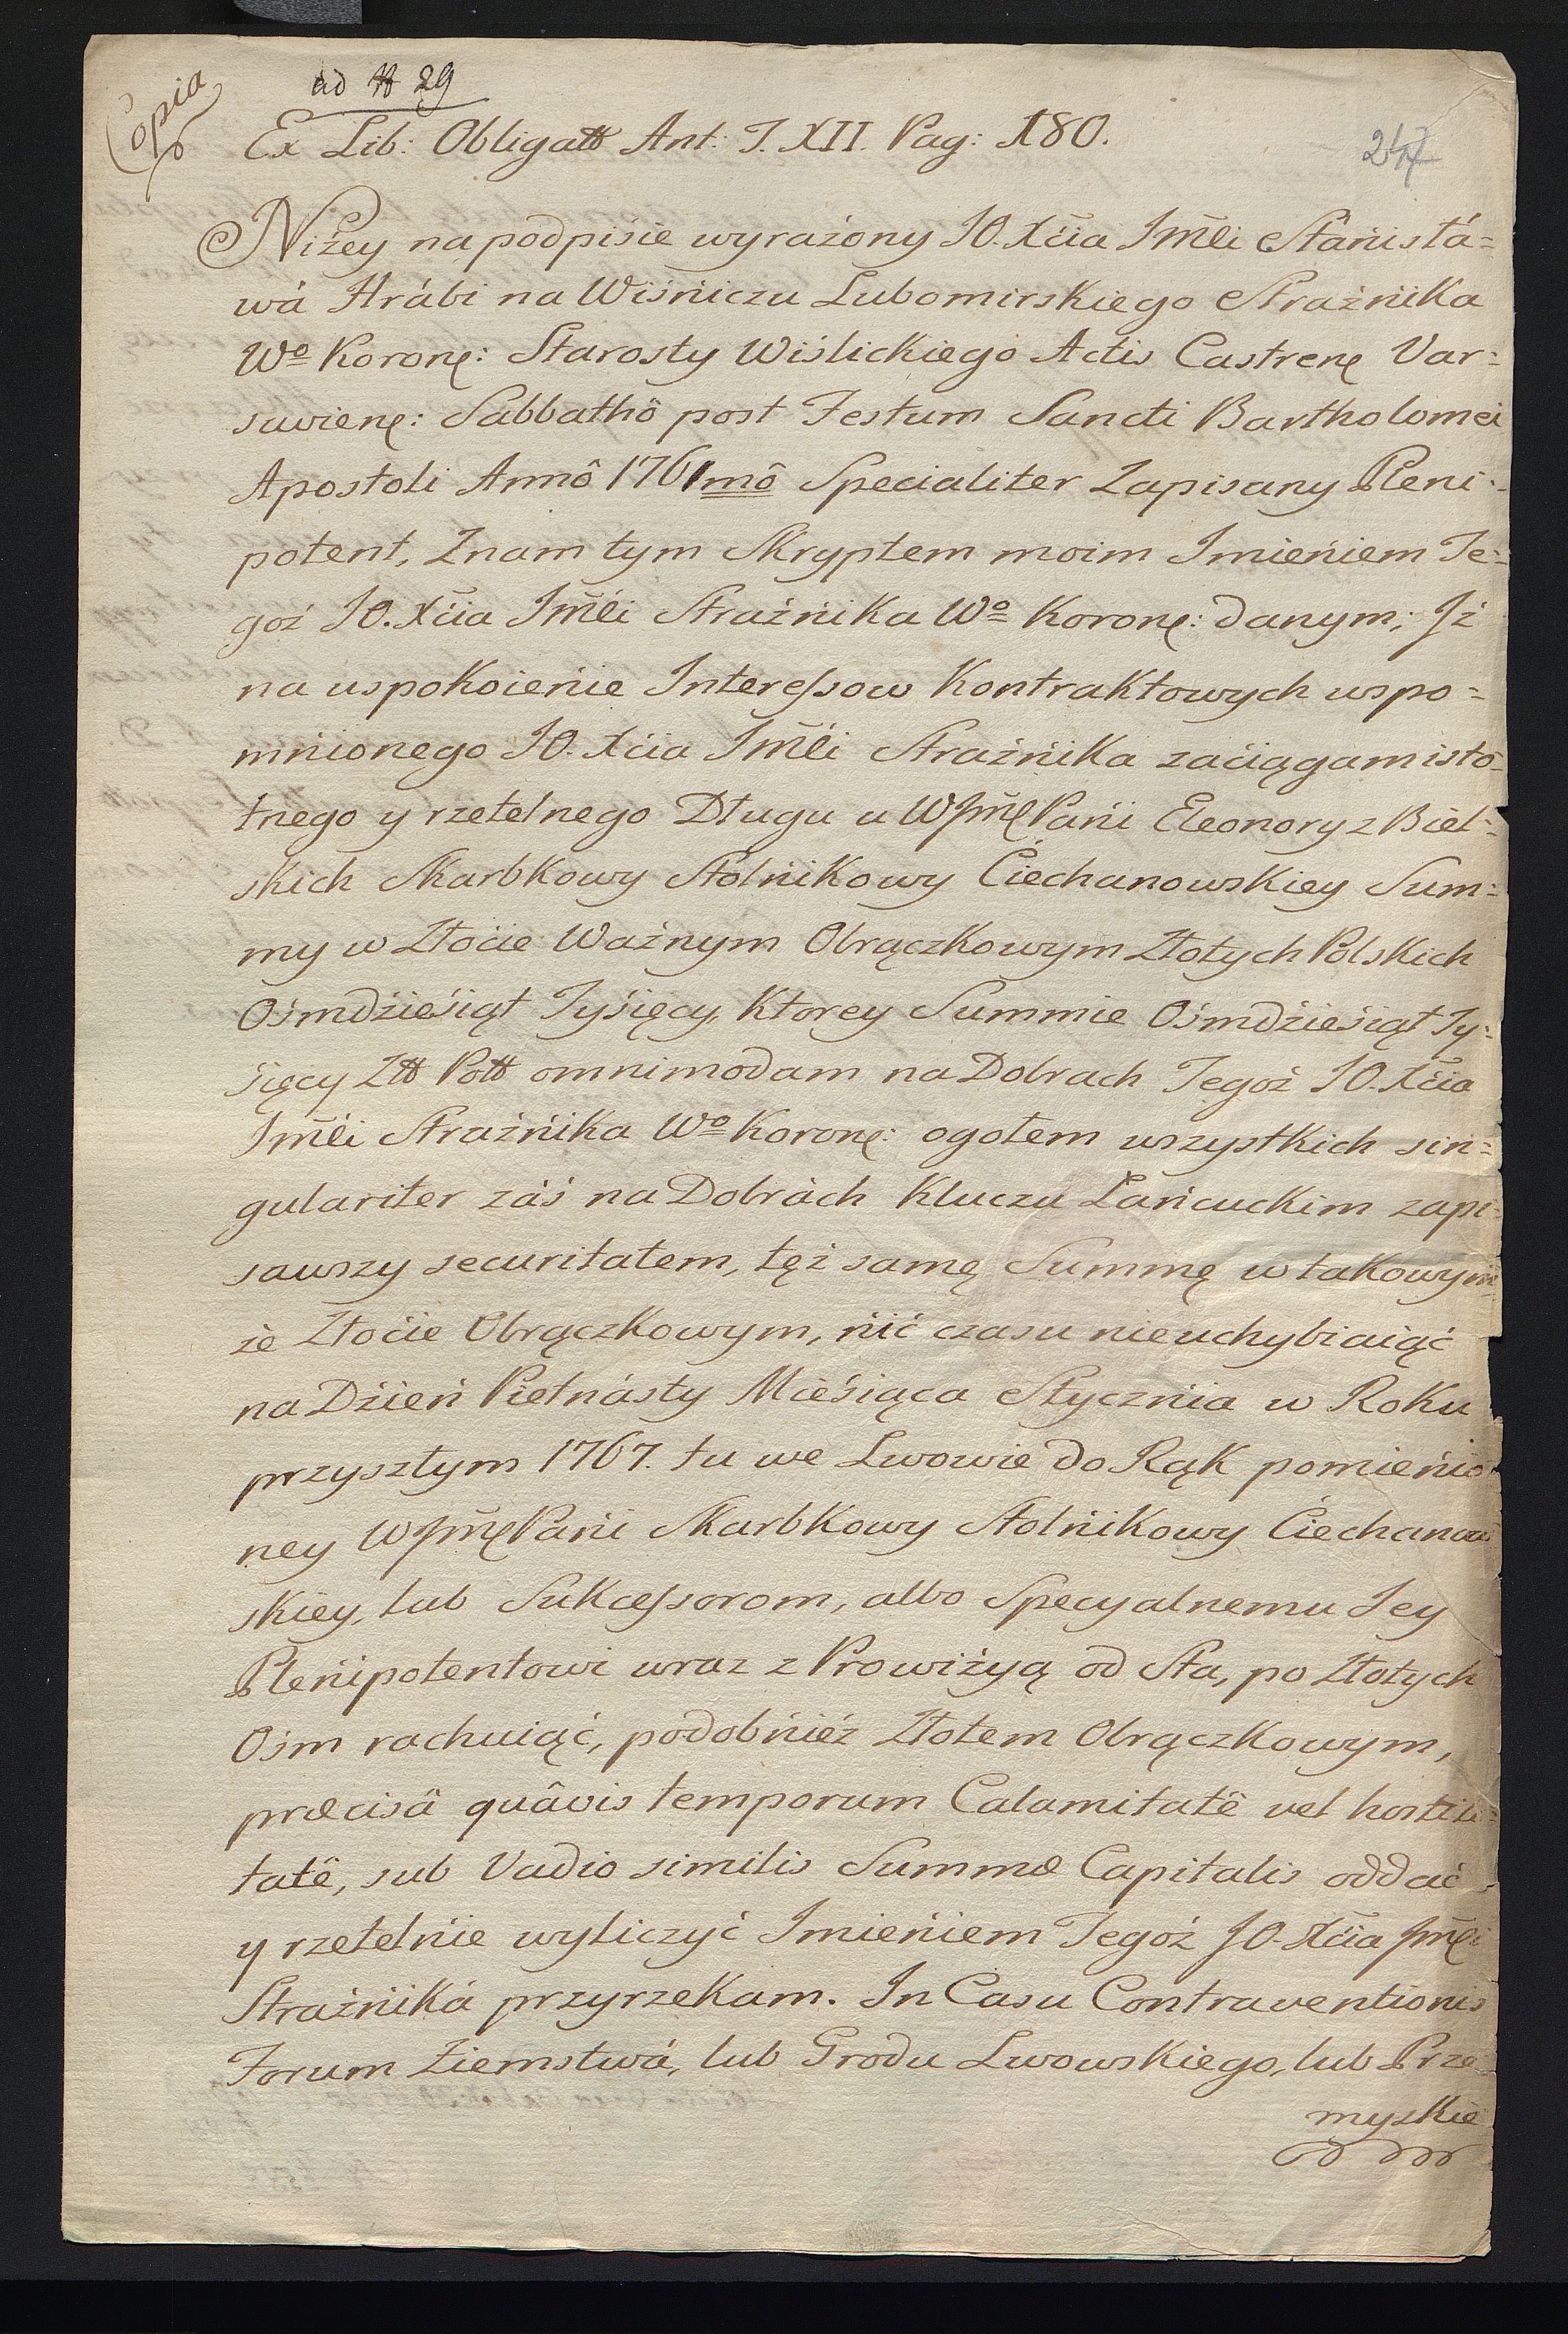 Copia
ad # 29
Ex Lib: Obligatt Ant: T. XII. Pag: 180.
247
Niżey na podpisie wyrażony JO. Xcia Jmći Stánisłá=
wá Hrábi na Wiśniczu Lubomirskiego Strażnika
Wo Koronę: Starosty Wiślickiego Actis Castrenę Var=
savienę: Sabbathô post Festum Sancti Bartholomei
Apostoli Annô 1761mô Specialiter Zapisany Pleni=
potent, Znam tym Skryptem moim Imieniem Te=
goż JO. Xcia Jmći Strażnika Wo Koronę: danym; Iż
na uspokoienie Interessow Kontraktowych wspo=
mnionego JO. Xcia Jmći Strażnika zaciągam isto=
tnego y rzetelnego Długu u WJmę Pani Eleonory z Biel=
skich Skarbkowy Stolnikowy Ciechanowskiey Sum=
my w Złocie Ważnym Obrączkowym Złotych Polskich
Ośmdźieśiąt Tyśięcy, Ktorey Summie Ośmdźieśiąt Ty=
śięcy Ztt Pott omnimodam na Dobrach Tegoż JO. Xcia
Jmći Strażnika Wo Koronę: ogołem wszystkich sin=
gulariter záś na Dobrách Kluczu Łańcuckim zapi=
sawszy securitatem, tęż samę Summę w takowym
że Złocie Obrączkowym, nic czasu nieuchybiaiąć
na Dźień Pietnásty Mieśiąca Stycznia w Roku
przyszłym 1767. tu we Lwowie do Rąk pomienio
ney WJmę Pani Skarbkowy Stolnikowy Ciechanow
skiey, lub Sukcessorom, albo Specyalnemu Jey
Plenipotentowi wraz z Prowizyą od Sta, po Złotych
Ośm rachuiąć, podobnież Złotem Obrączkowym,
præcisâ quâvis temporum Calamitatê vel hostili=
tatê, sub Vadio similis Summæ Capitalis oddać
y rzetelnie wyliczyć Imieniem Tegoż JO. Xcia Jmći
Strażniká przyrzekam. In Casu Contraventionis
Forum Ziemstwá, lub Grodu Lwowskiego, lub Prze
myskie